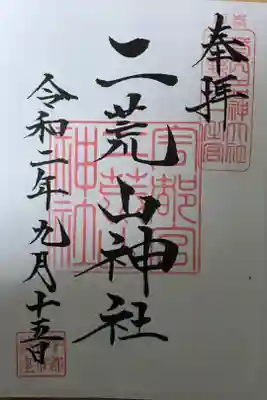 奉拝
二荒山神社
宇都宮
二荒山
神社
令和二年九月十五日